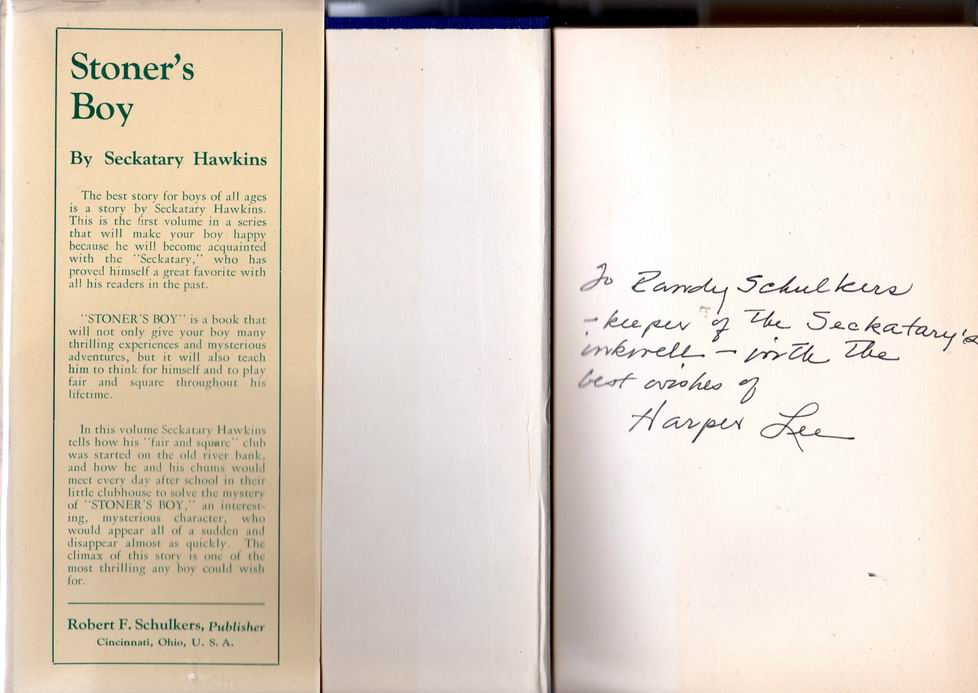 Stoner's
Boy
By Seckatary Hawkins
The best story for boys of all ages
is a story by Seckatary Hawkins.
This is the first volume in a series
that will make your boy happy
because he will become acquainted
with the "Seckatary," who has
proved himself a great favorite with
all his readers in the past.
"STONER'S BOY" is a book that
will not only give your boy many
thrilling experiences and mysterious
adventures, but it will also teach
him to think for himself and to play
fair and square throughout his
lifetime.
In this volume Seckatary Hawkins
tells how his "fair and square" club
was started on the old river bank,
and how he and his chums would
meet every day after school in their
little clubhouse to solve the mystery
of "STONER'S BOY," an interest-
ing, mysterious character, who
would appear all of a sudden and
disappear almost as quickly. The
climax of this story is one of the
most thrilling any boy could wish
for.
Robert F. Schulkers, Publisher
Cincinnati, Ohio, U. S. A.
To Randy Schulkers
- keeper of the Seckatary's
inkwell - with the
best wishes of
Harper Lee